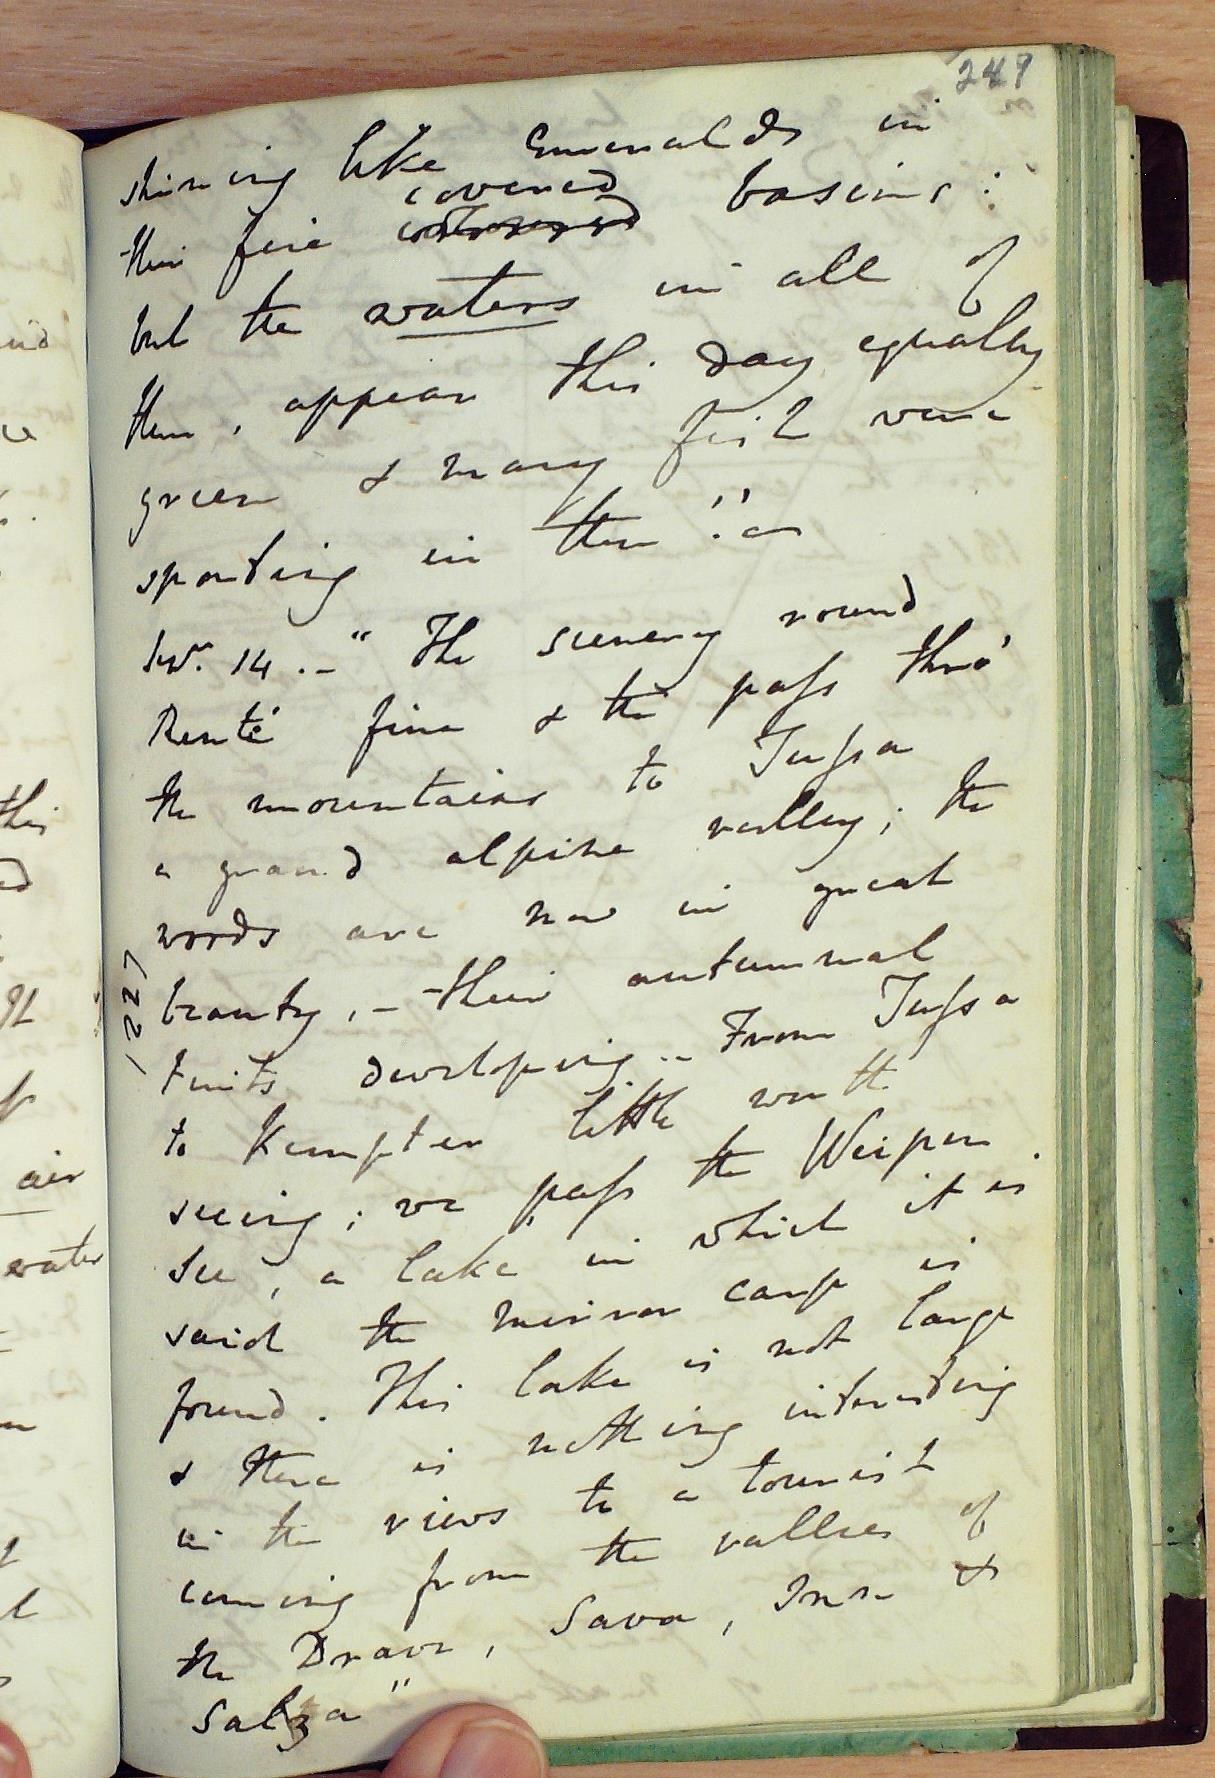 249
shining like Emeralds in
covered
their fine basins:
but the waters in all of
them, appear this day equally
green & many fish were
sporting in them."
Sepr. 14. – " The scenery round
Reuté fine & the pass thro'
the mountains to Tussa
a grand alpine valley; the
woods are now in great
beauty, – their autumnal
1827
tints developing – From Tussa
to Kempten little worth
seeing; we pass the Weipen
See, a lake in which it is
said the mirror carp is
found. This lake is not large
& there is nothing interesting
in the views to a tourist
coming from the vallies of
the Drave, Sava, Inn &
Salza"
this
air
water